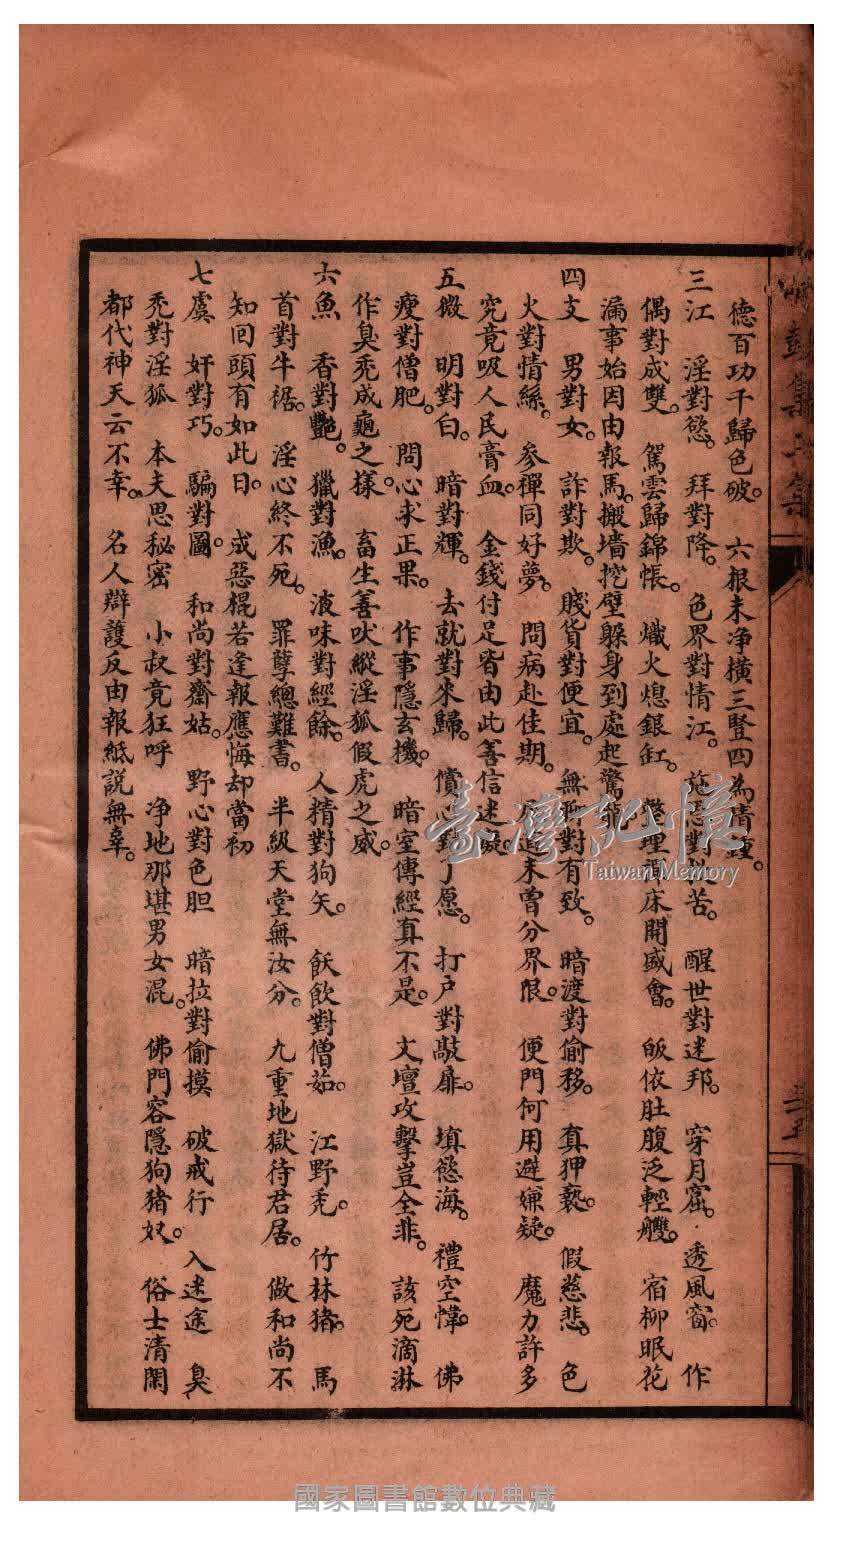 德百功千歸色破。 六根未净橫三豎四為情鍾。
三江 淫對慾。 拜對降。 色界對情江。 對救苦。 醒世對迷邦。 穿月窟。 透風窗。 作
偶對成雙。 駕雲歸錦帳。 熾火熄銀缸。 禪床開盛會。 皈依肚腹泛輕艭。 宿柳眠花
漏事始因由報馬。搬墻挖壁躲身到處起驚
四支 男對女。 詐對欺。 賤貨對便宜。 無聊對有致。 暗渡對偷移。 真狎褻。 假慈悲。 色
火對情絲。 參禪同好夢。 問病赴佳期。 未曾分界限。 便門何用避嫌疑。 魔力許多
究竟吸人民膏血。 金錢付足皆由此善信迷
五微 明對白。 暗對輝。 去就對來歸。 償心對了愿。 打户對敲扉。 填慾海。 禮空幃。 佛
瘦對僧肥。 問心求正果。 作事隱玄機。 暗室傳經真不是。 文壇攻擊豈全非。 該死滴淋
作臭禿成龜之樣。 畜生善吠縱淫狐假虎之威。
六魚 香對艷。 獵對漁。 液味對經餘。 人精對狗矢。 飫飲對僧茹。 江野禿。 竹林猪。 馬
首對牛裾。 淫心終不死。 罪孽總難書。 半級天堂無汝分。 九重地獄待君居。 做和尚不
知回頭有如此日。 成惡棍若逢報應悔却當初
七虞 奸對巧。 騙對圖。 和尚對齋姑。 野心對色胆 暗拉對偷摸 破戒行 入迷途 臭
禿對淫狐 本夫思秘密 小叔竟狂呼 净地那堪男女混。 佛門容隱狗猪奴。 俗士清閑
都代神天云不幸。 名人辯護反由報紙説無辜。
臺灣記憶
Taiwan Memory
國家圖書館數位典藏